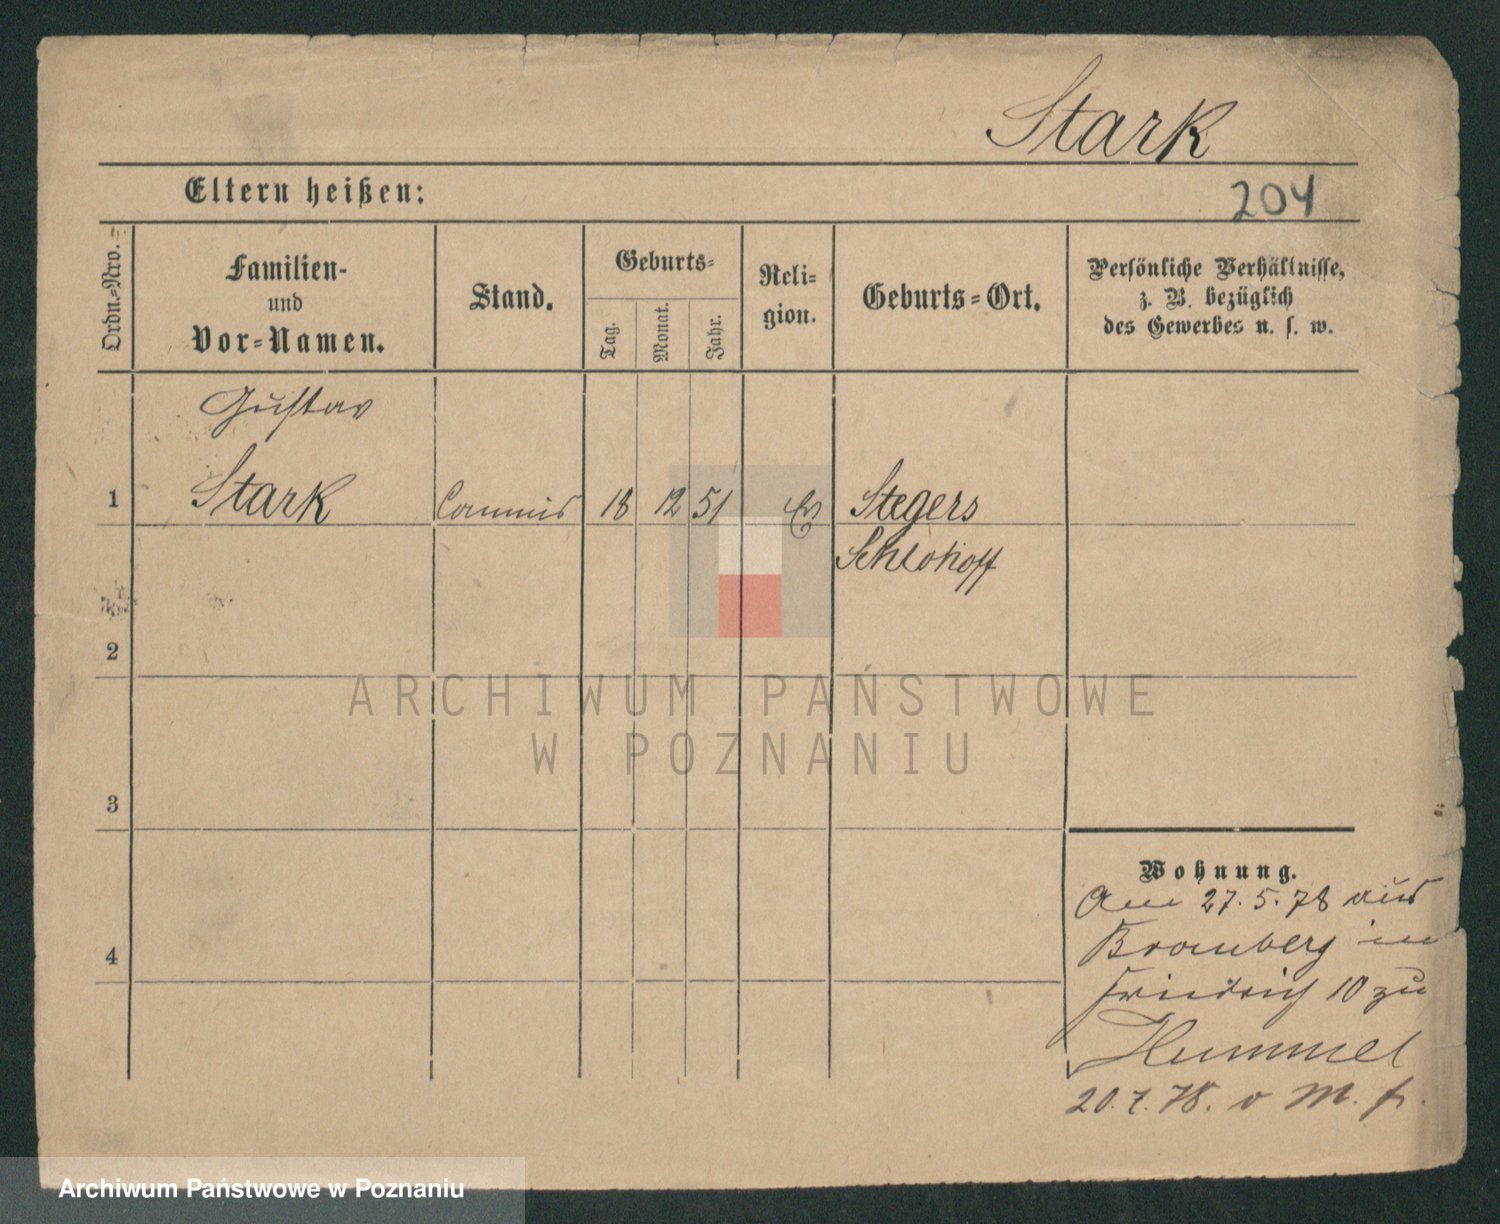 Stark
Eltern heißen:
204
Ordn.-Nro.
Familien-
und
Vor-Namen.
Stand.
Geburts-
Tag.
Monat.
Jahr.
Reli-
gion.
Geburts-Ort.
Persönliche Verhältnisse,
z. B. bezüglich
des Gewerbes u. s. w.
Gustav
1 Stark Commis 18 12 51 Ev Stegers
Schlohoff
2
3
4
Wohnung.
Am 27.5.78 aus
Bromberg in
Friedrich 10 zu
Hummel
20.7.78. v M. f.
ARCHIWUM PAŃSTWOWE
W POZNANIU
Archiwum Państwowe w Poznaniu